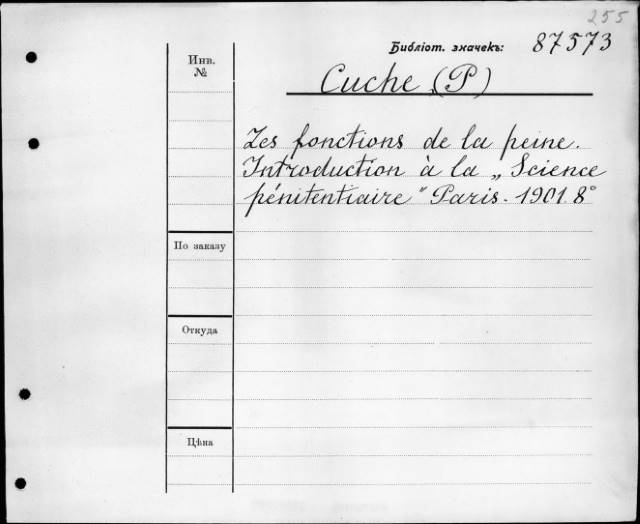 255
Библіот. значекъ: 87573
Инв.
№
Cuche (P)
Les fonctions de la peine.
Introduction à la „Science
pénitentiaire" Paris - 1901. 8°
По заказу
Откуда
Цѣна